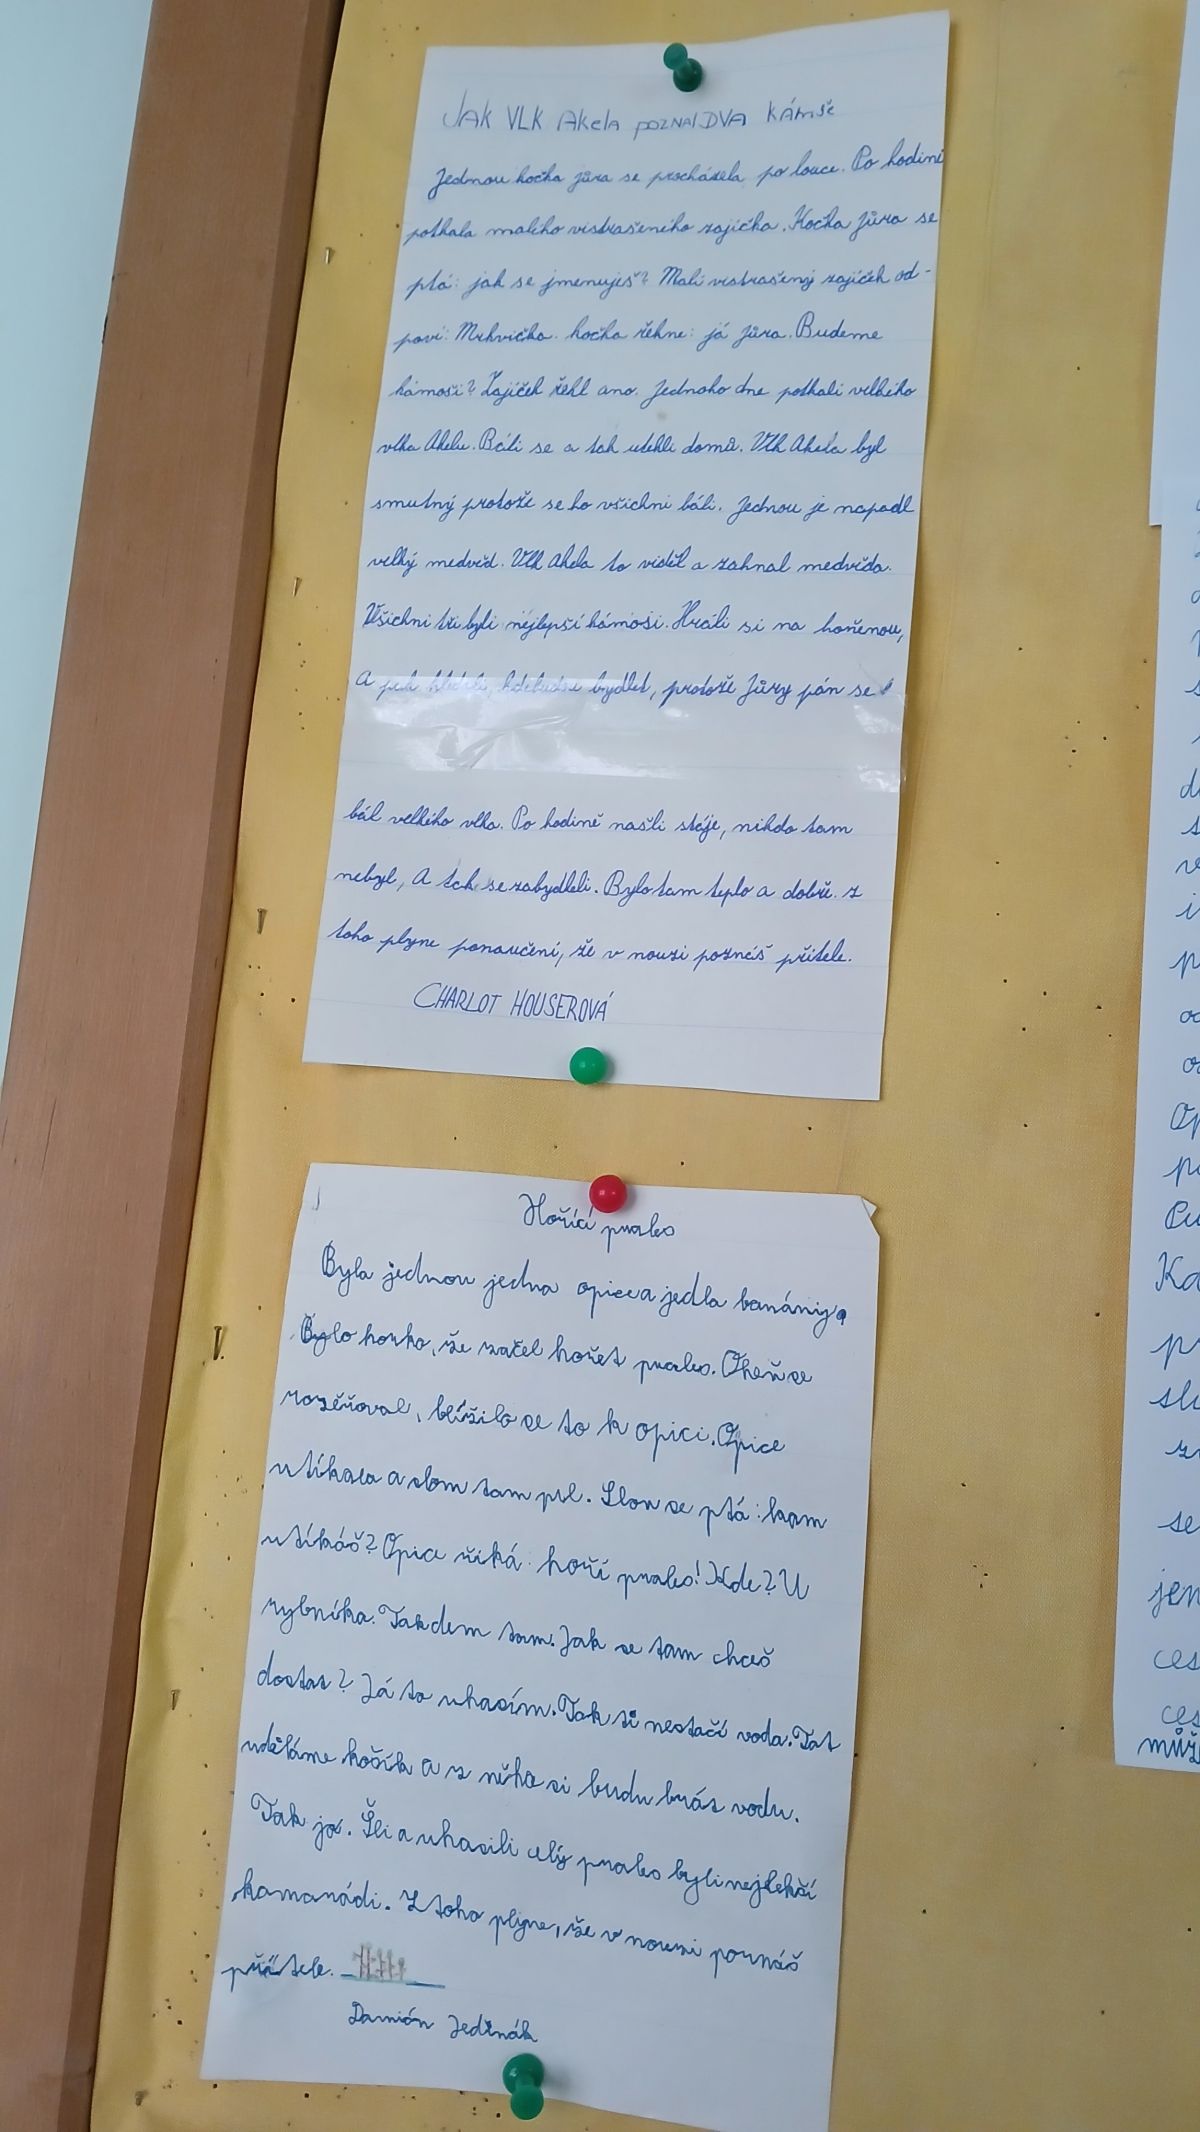 JAK VLK AKELA POZNAL DVA KÁMŠE
Jednou kočka Jůra se procházela po louce. Po hodině
potkala malého vistrašeného zajíčka. Kočka Jůra se
ptá: jak se jmenuješ? Malí vistrašený zajíček od-
poví: Mrkvička. kočka řekne: já Jůra. Budeme
kámoši? Zajíček řekl ano. Jednoho dne potkali velkého
vlka Akelu. Báli se a tak utekli domů. Vlk Akela byl
smutný protože se ho všichni báli. Jednou je napadl
velký medvěd. Vlk Akela to viděl a zahnal medvěda.
Všichni tři byli nejlepší kámoši. Hráli si na honěnou,
A pak hledali, kdebudou bydlet, protože Jůry pán se
bál velkého vlka. Po hodině našli stáje, nikdo tam
nebyl, A tak se zabydleli. Bylo tam teplo a dobře. z
toho plyne ponaučení, že v nouzi poznáš přítele.
CHARLOT HOUSEROVÁ
Hořící prales
Byla jednou jedna opice a jedla banány.
Bylo horko, že začel hořet prales. Oheň se
rozšiřoval, blížilo se to k opici. Opice
utíkala a slom tam pil. Slon se ptá: kam
utíkáš? Opice říká: hoří prales! Kde? U
rybníka. Takdem tam. Jak se tam chceš
dostat? Já to uhasím. Tak ti nestačí voda. Tat
uděláme košík a z něho si budu brát vodu.
Tak jo. Šli a uhasili celý prales byli nejlekší
kamarádi. Z toho plyne, že v nouzi poznáš
přítele.
Damián Jedinák